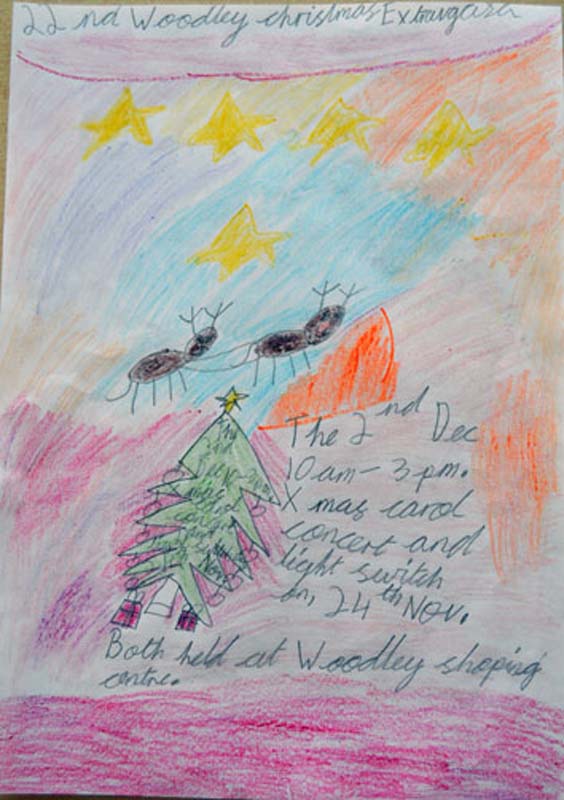 22nd Woodley christmas Extravganza
The 2nd Dec
10am - 3pm.
Xmas carol
concert and
light switch
on, 24th Nov.
Both held at Woodley shoping
centre.